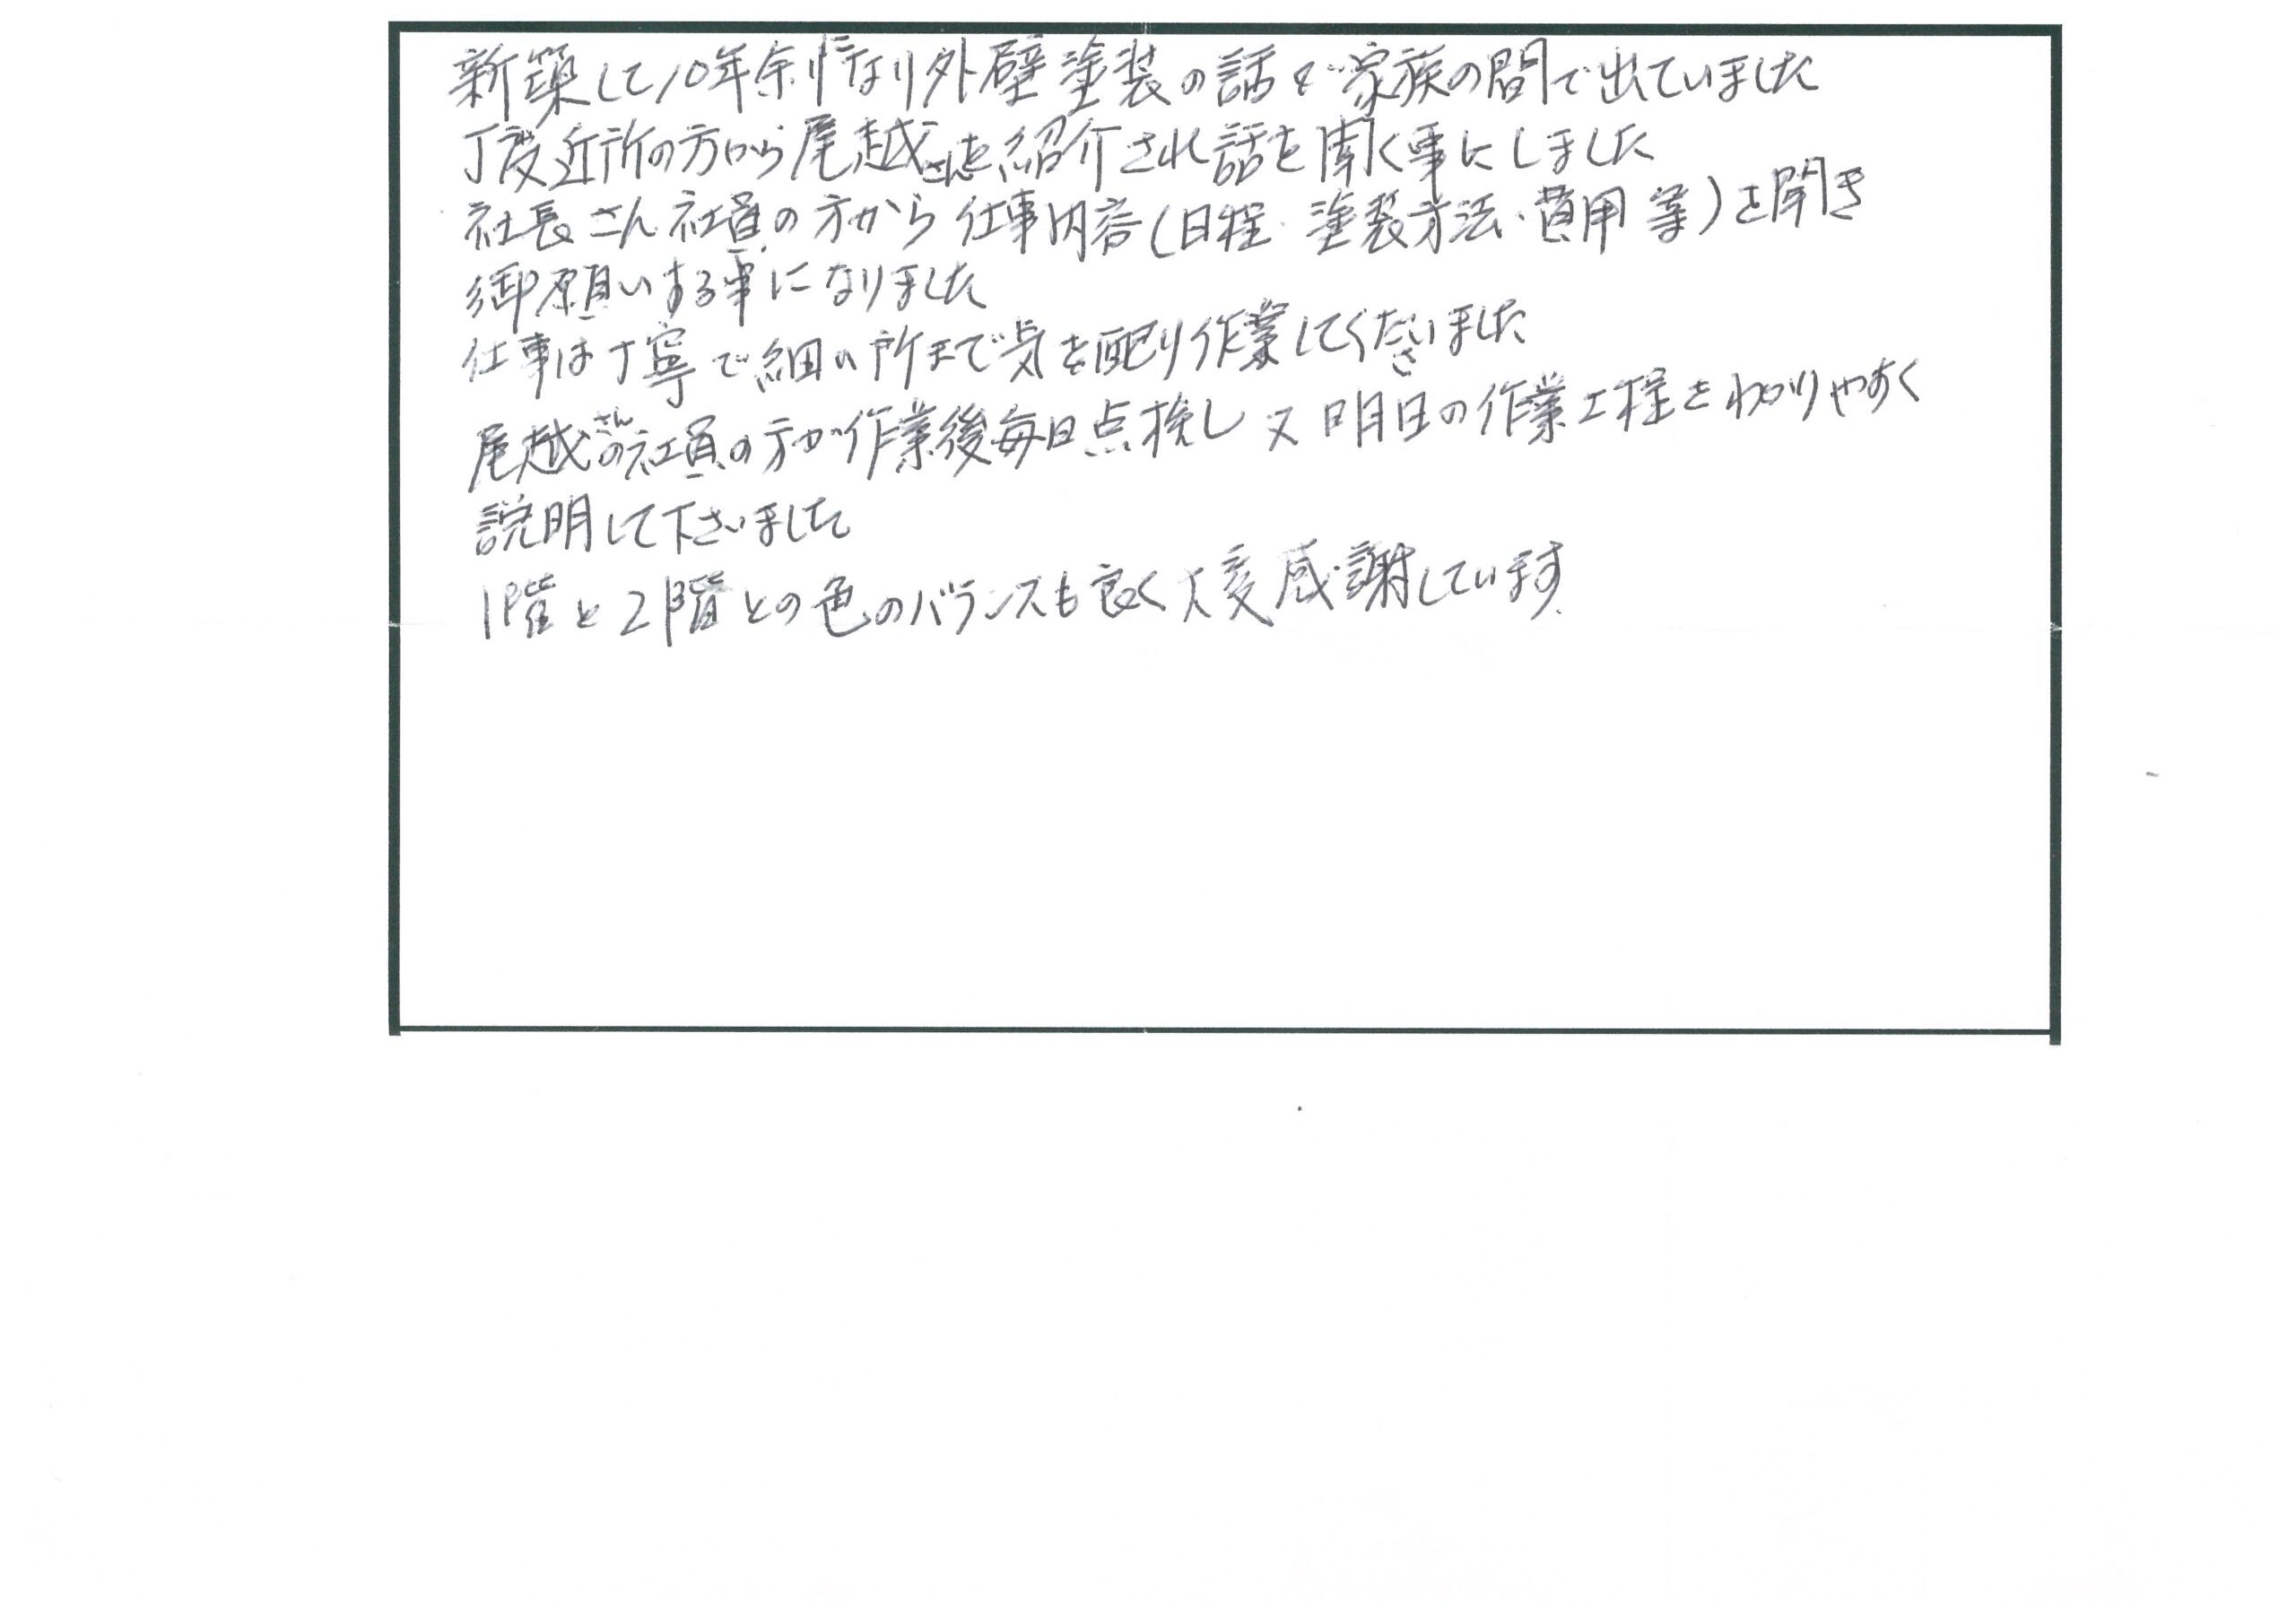 新築して10年余りになり外壁塗装の話が家族の間で出ていました
丁度近所の方から尾越さんを紹介され話を聞く事にしました
社長さん社員の方から仕事内容(日程・塗装方法・費用等)を聞き
御願いする事になりました
仕事は丁寧で細い所まで気を配り作業してくださいました
尾越さんの社員の方が作業後毎日点検し又明日の作業工程をわかりやすく
説明して下さいました
1階と2階との色のバランスも良く大変感謝しています